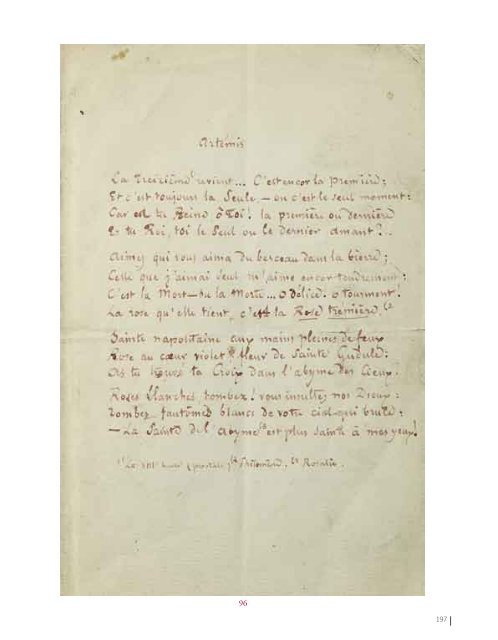 Artémis
La Treizième revient... C'est encor la première;
Et c'est toujours la Seule, — ou c'est le seul moment:
Car es-tu Reine ô Toi! la première ou dernière
Es-tu Roi, toi le Seul ou le dernier amant?..
Aimez qui vous aima du berceau dans la bière;
Celle que j'aimai seul m'aime encor tendrement:
C'est la Mort — ou la Morte... O délice! ô tourment!
La rose qu'elle tient, c'est la Rose trémière.
Sainte napolitaine aux mains pleines de feux
Rose au cœur violet, fleur de Sainte Gudule:
As-tu trouvé ta Croix dans l'abyme des Cieux?
Roses blanches, tombez! vous insultez nos Dieux:
Tombez fantômes blancs de votre ciel qui brûle:
— La Sainte de l'abyme est plus sainte à mes yeux!
La XIIIe heure (pivotale) Philomène, Rosalie.
96
197